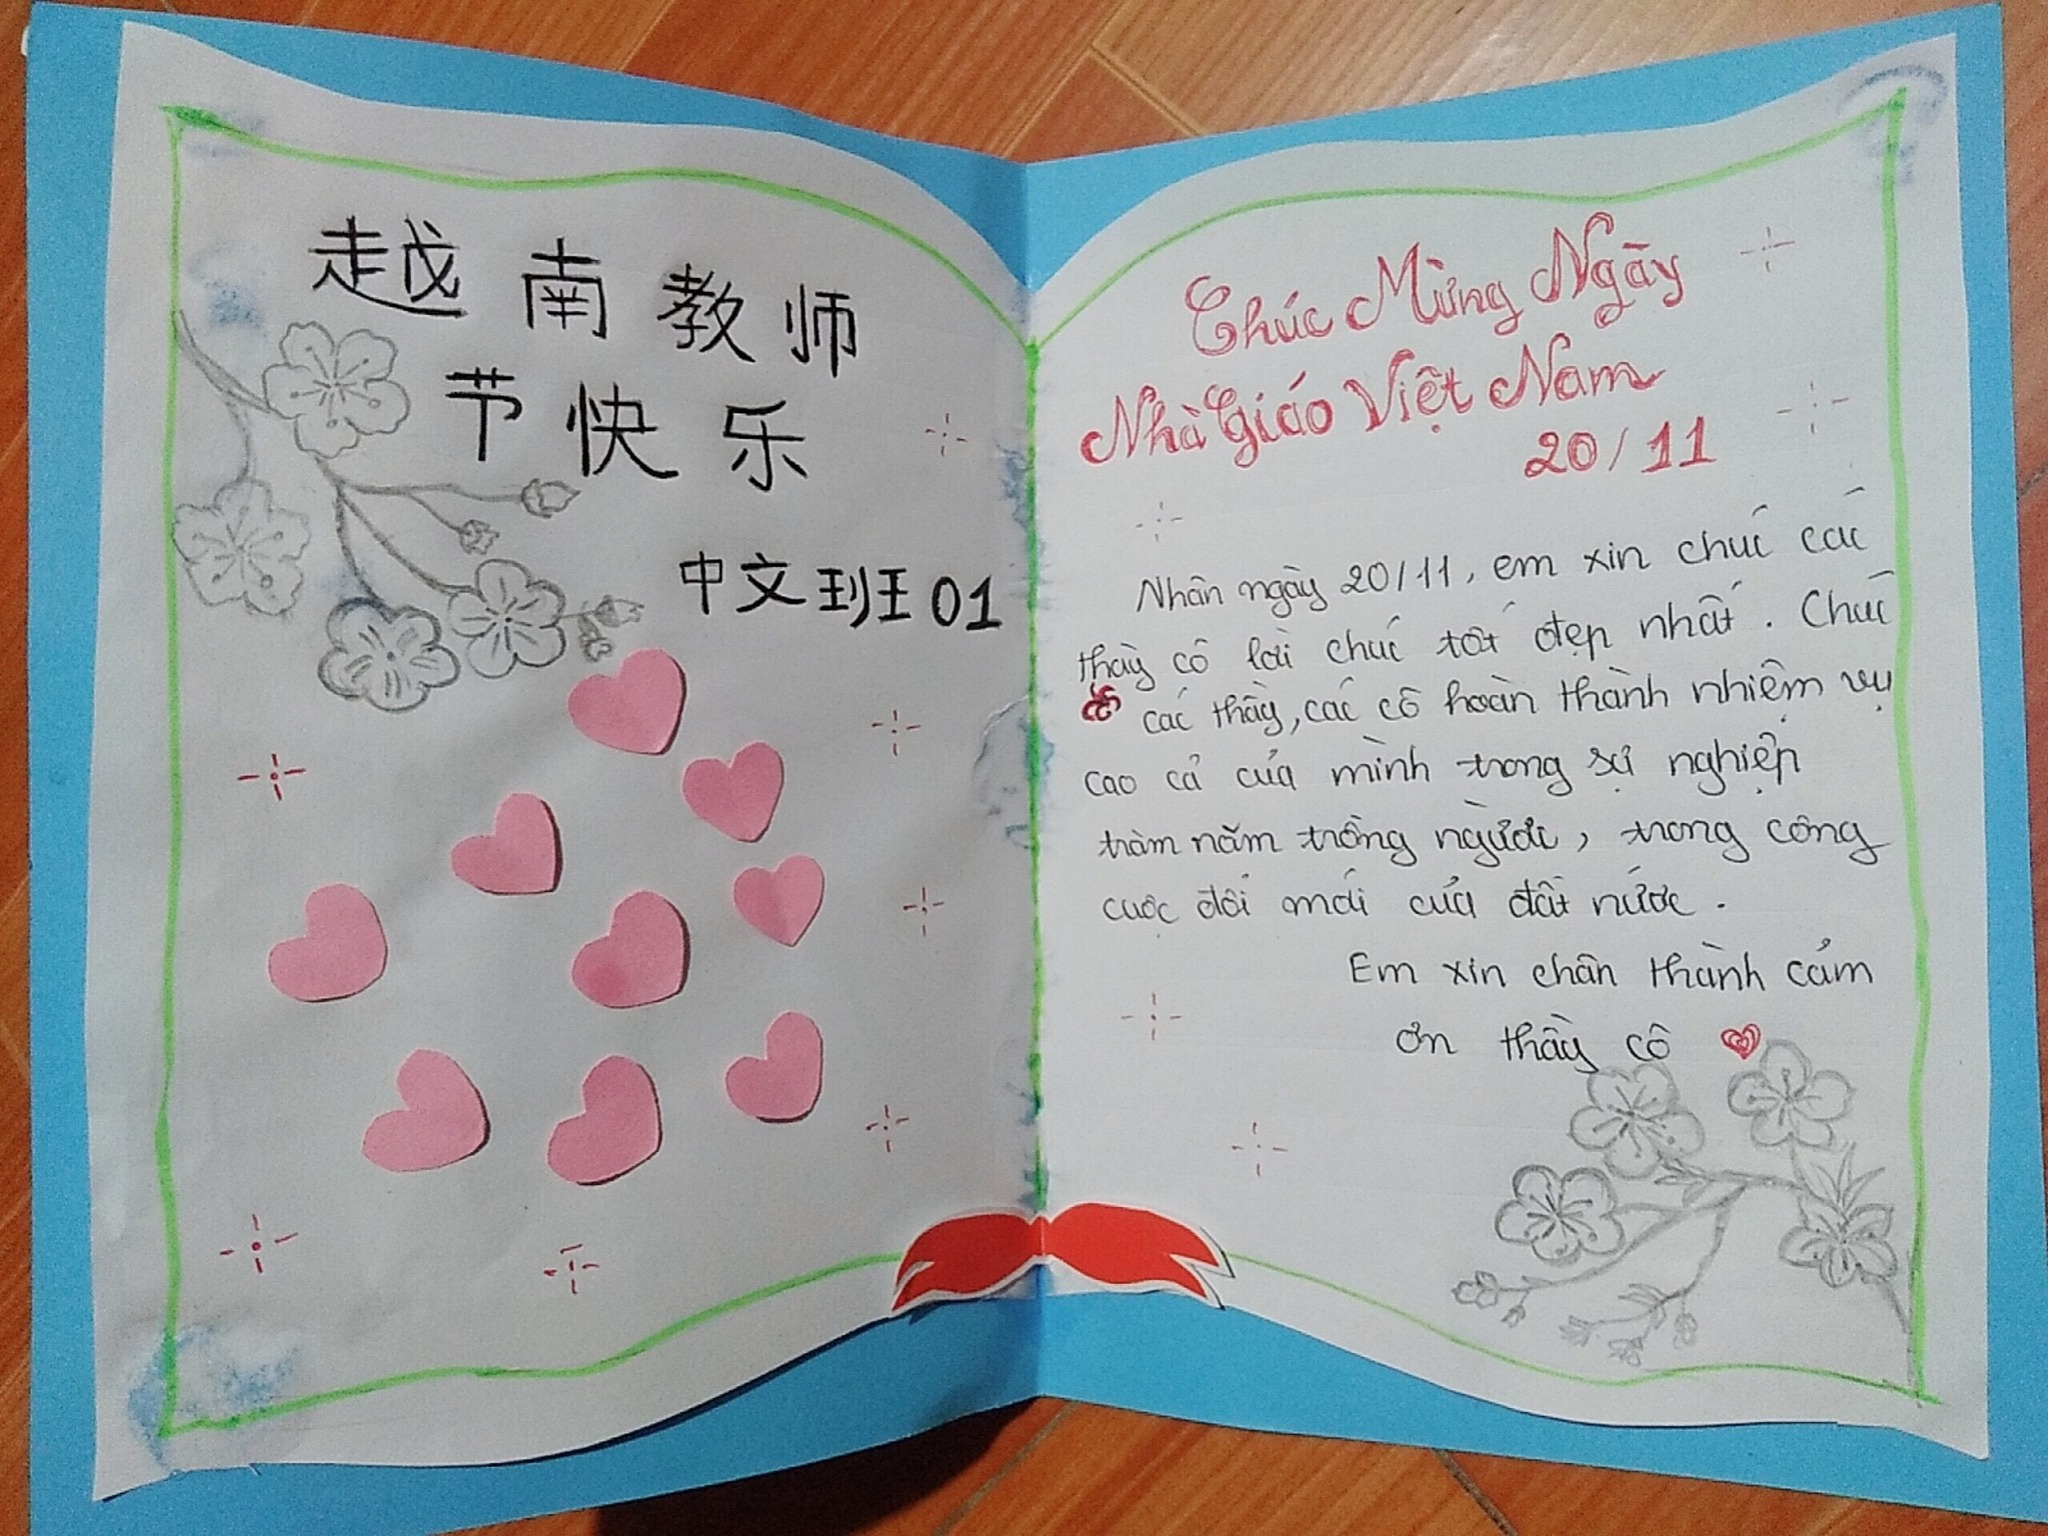 越南教师
节快乐
中文班01
Chúc Mừng Ngày
Nhà Giáo Việt Nam
20/11
Nhân ngày 20/11, em xin chúc các
thầy cô lời chúc tốt đẹp nhất. Chúc
các thầy, các cô hoàn thành nhiệm vụ
cao cả của mình trong sự nghiệp
trăm năm trồng người, trong công
cuộc đổi mới của đất nước.
Em xin chân thành cảm
ơn thầy cô